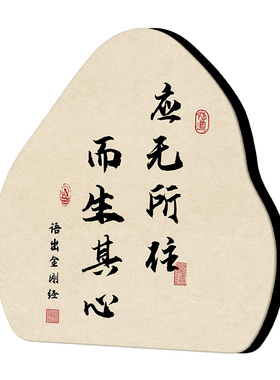 应无所住
而生其心
语出金刚经